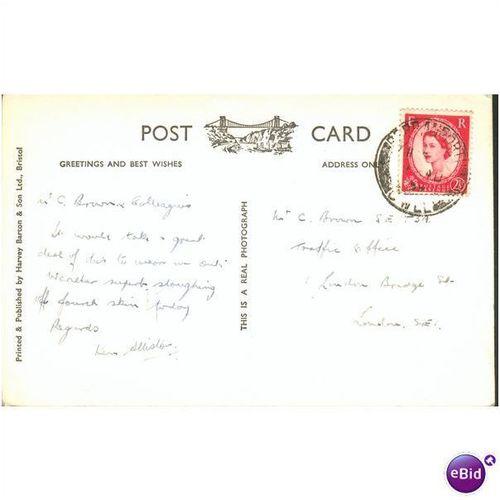 POST CARD
GREETINGS AND BEST WISHES
ADDRESS ONLY
Printed & Published by Harvey Barton & Son Ltd., Bristol
Mr C. Brown & Colleagues
It would take a great
deal of this to wear us out
Weather superb, sloughing
off fourth skin today
Regards
Ken
THIS IS A REAL PHOTOGRAPH
Mr C. Brown S.E.
Traffic Office
London Bridge St.
London. S.E.1.
E R
eBid